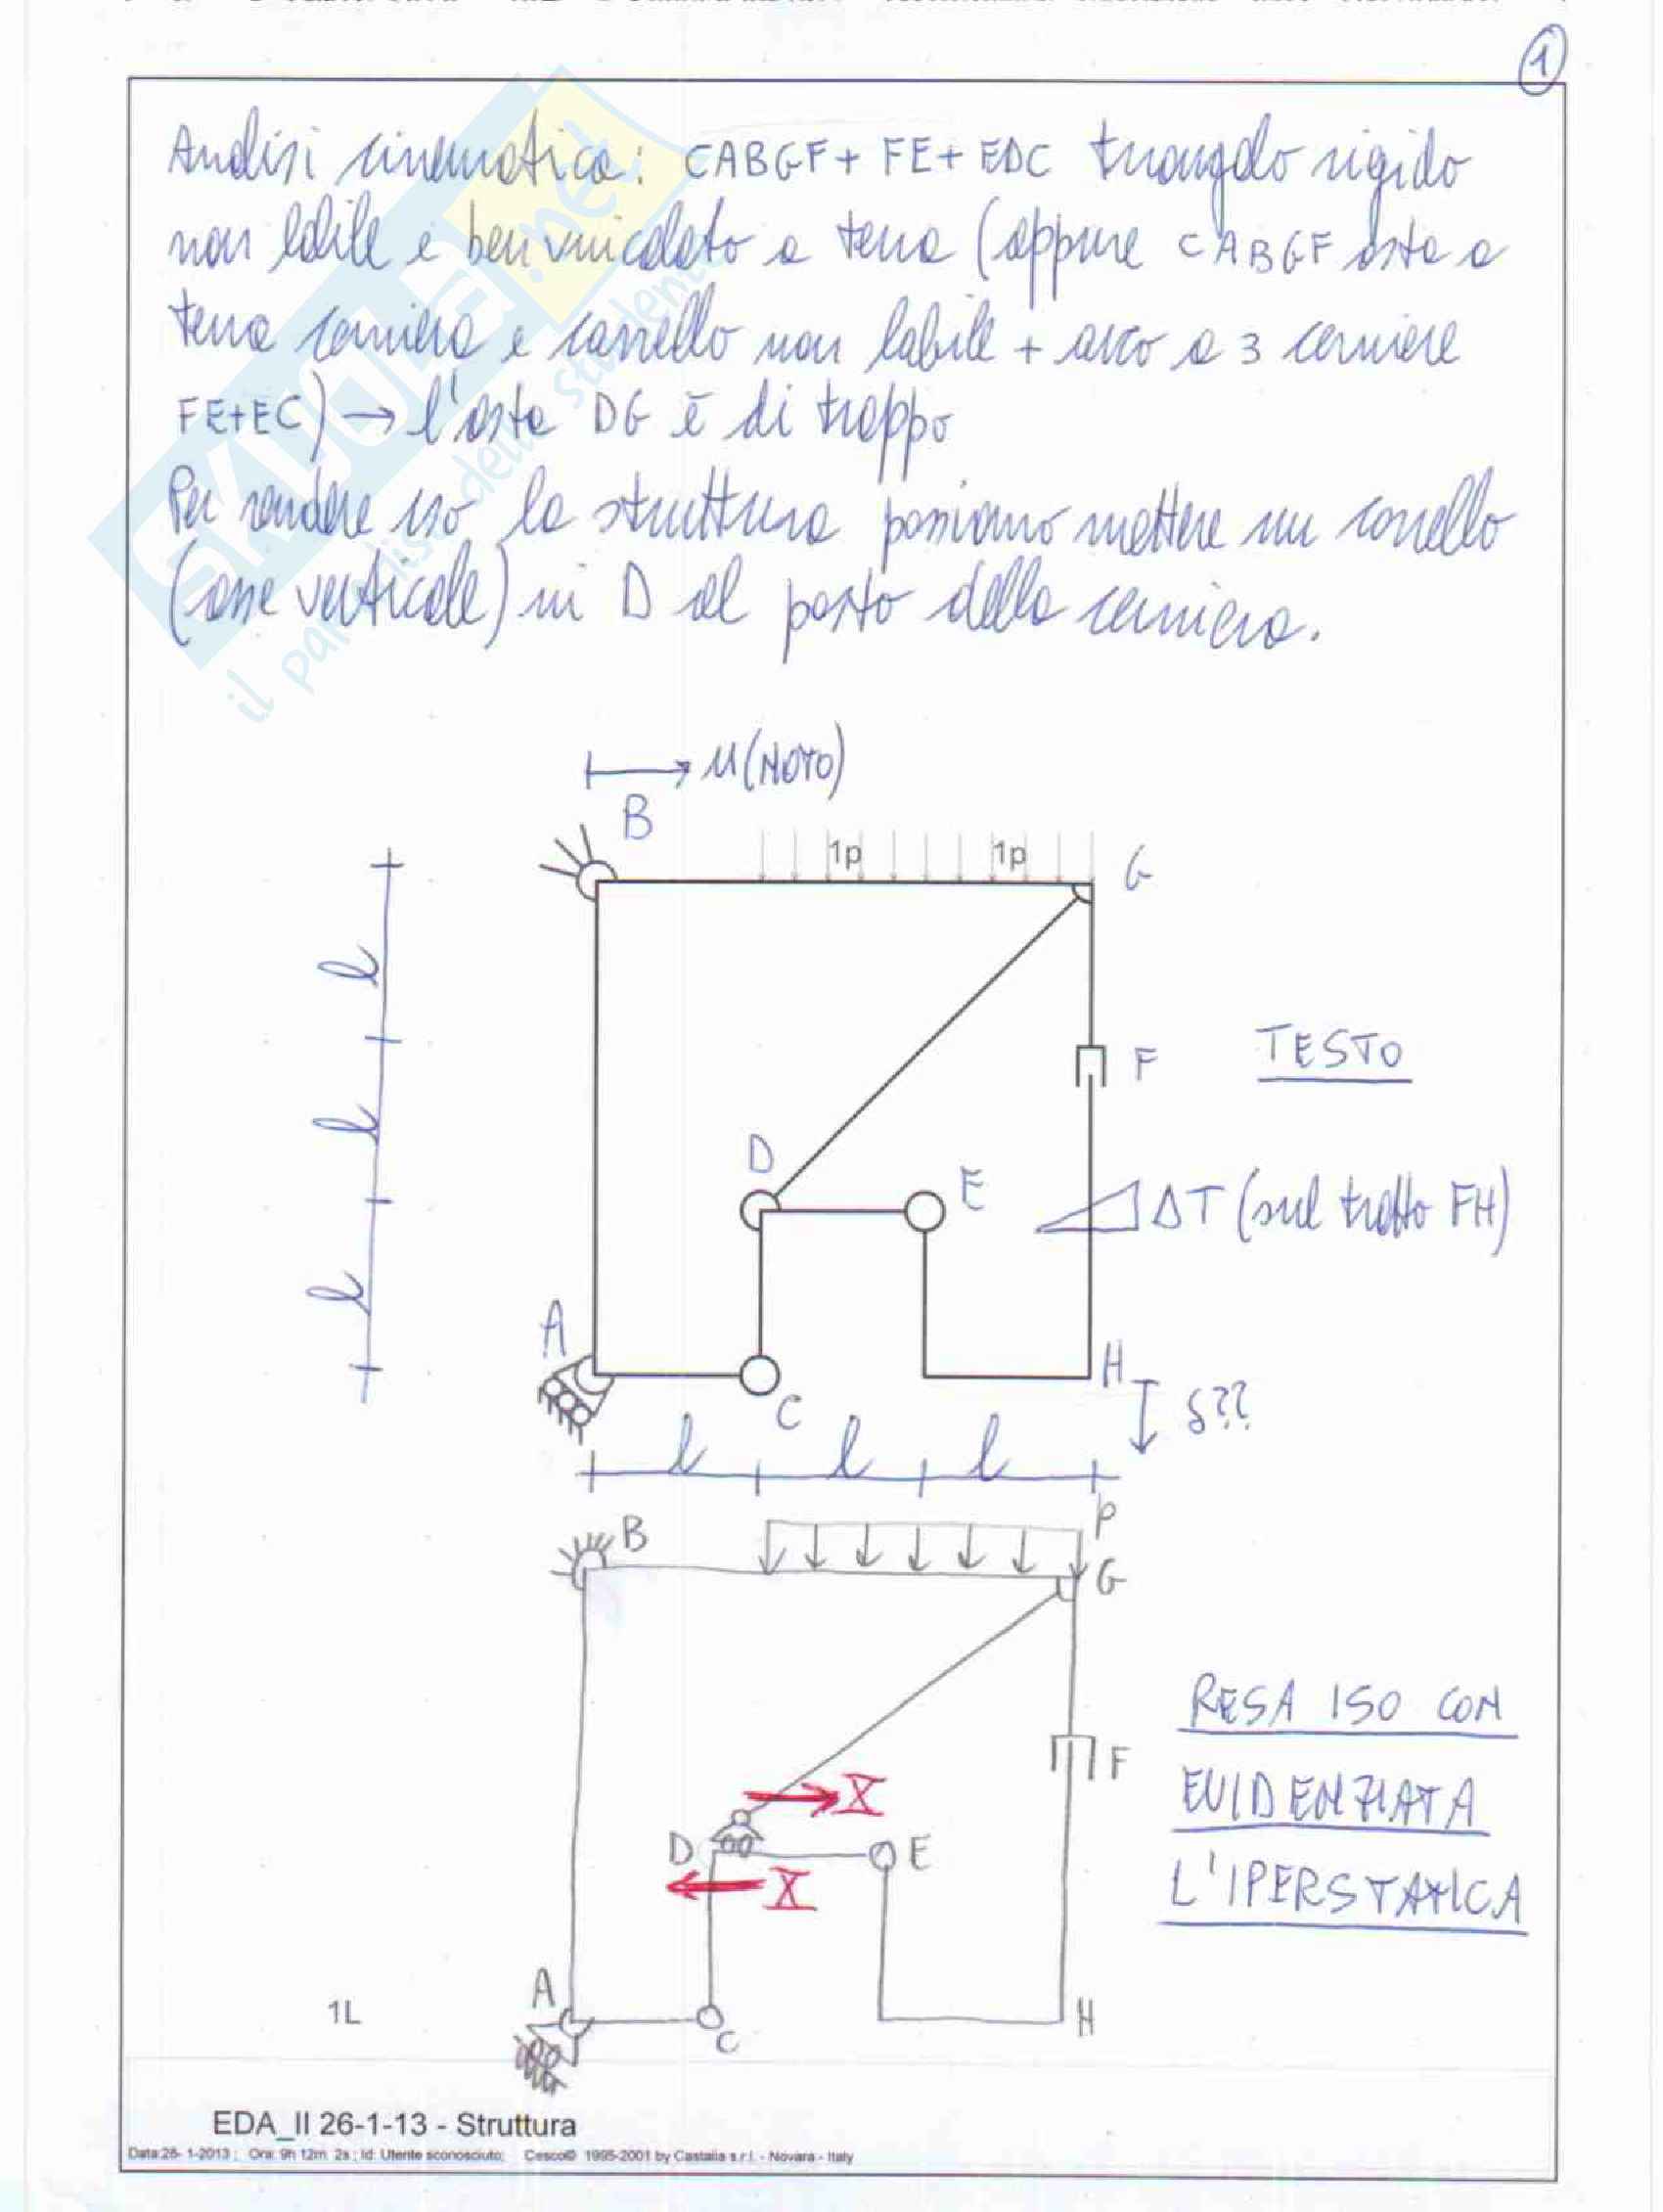 1
Analisi cinematica: CABGF + FE + EDC triangolo rigido
non labile e ben vincolato a terra (oppure CABGF asta a
terra cerniera e carrello non labile + arco a 3 cerniere
FE+EC) → l'asta DG è di troppo
Per rendere iso la struttura possiamo mettere un carrello
(asse verticale) in D al posto della cerniera.
SKUOLA.net
il paradiso dello studente
u (NOTO)
B
1p 1p
G
l
F
TESTO
l
D
E
ΔT (sul tratto FH)
l
A
H
C
δ??
l l l
B
P
G
RESA ISO CON
X
F
EVIDENZIATA
D
E
X
L'IPERSTATICA
A
1L
C
H
EDA_II 26-1-13 - Struttura
Data:26- 1-2013 ; Ora: 9h 12m 2s ; Id: Utente sconosciuto; Cesco© 1995-2001 by Castalia s.r.l. - Novara - Italy